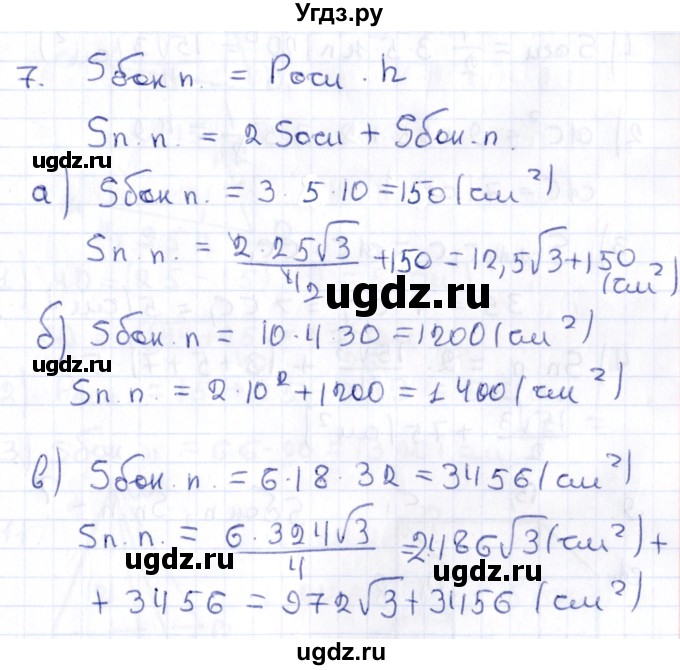 Угдз.ру
7. Sбок п. = Pосн · h
Sп.п. = 2Sосн + Sбок.п.
ugdz.ru ugdz.ru
а) Sбок п. = 3·5·10 = 150 (см²)
Sп.п. = 2·25√3/4 2 + 150 = 12,5√3 + 150 (см²)
ugdz.ru
б) Sбок.п = 10·4·30 = 1200 (см²)
Sп.п. = 2·10² + 1200 = 1400 (см²)
в) Sбок.п. = 6·18·32 = 3456 (см²)
Sп.п. = 6·324√3/4 = 2·486√3 (см²) +
ugdz.ru ugdz.ru
+ 3456 = 972√3 + 3456 (см²)
ugdz.ru